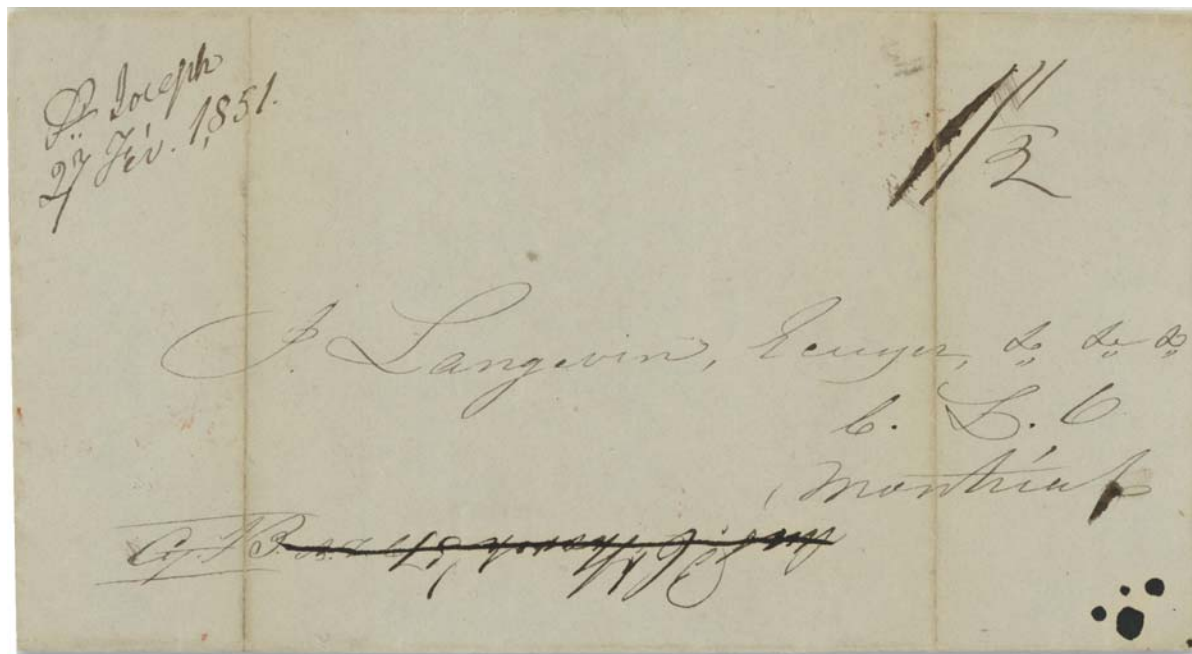 St. Joseph
27 Fév. 1851.
1/3
J. Langevin, Ecuyer, &c &c &c
C. L. C
Montréal